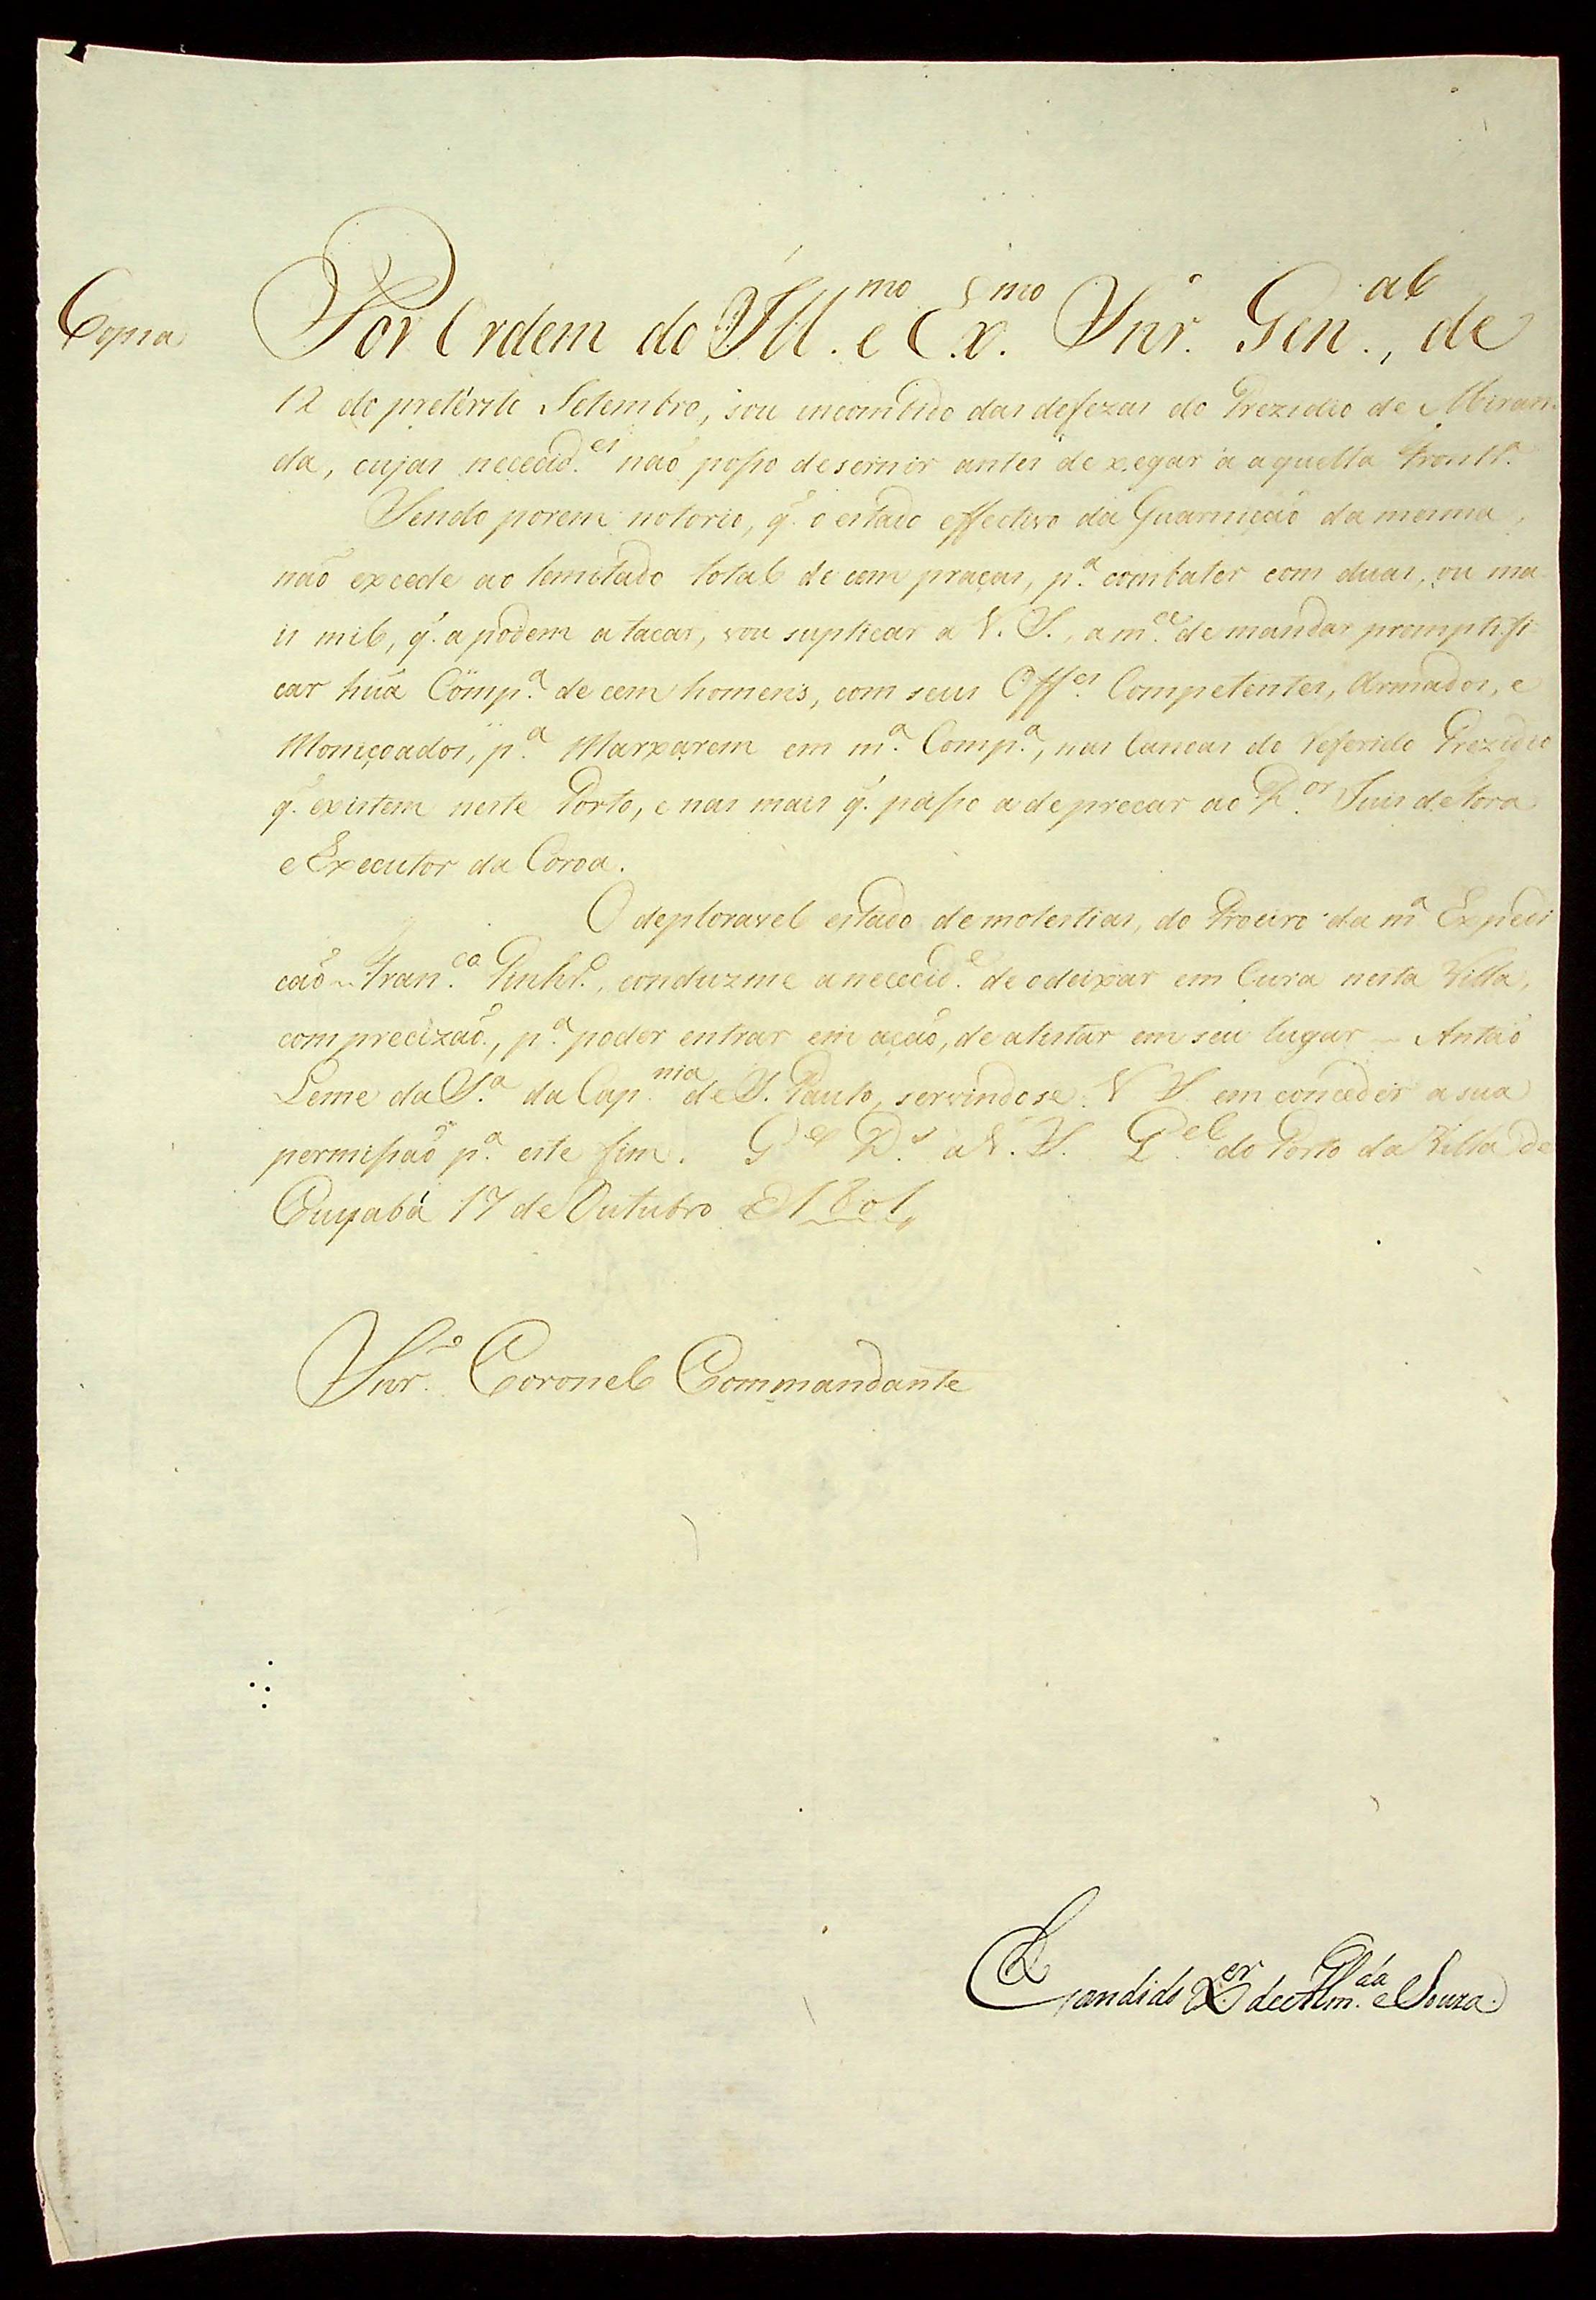 Copia
Por Ordem do Ill.mo e Ex.mo Snr. Gen.al, de
12 do pretérito Setembro, sou incombido das defezas do Prezidio de Miran-
da, cujas nececid.es naõ posso desernir antes de xegar à aquella Front.ra
Sendo porem notorio, q̃. o estado effectivo da Guarniçaõ da mesma,
naõ excede ao lemetado total de cem praças, p.a combater com duas, ou ma-
is mil, q̃. a podem atacar, vou suplicar a V. S., a m.ce de mandar promptifi-
car huã Comp.a de cem homens, com seus Off.es Competentes, Armados, e
Moniçoados, p.a Marxarem em m.a Comp.a, nas Canoas do Referido Prezidio
q̃. existem neste Porto, e nas mais q̃. passo a deprecar ao D.or Juis de Fora
e Executor da Coroa.
O deploravel estado de molestias, do Proeiro da m.a Expedi
caõ ~ Fran.co Pinhr.o, conduzme a nececid.e de o deixar em Cura nesta Villa,
com precizaõ, p.a poder entrar em açaõ, de alistar em seu lugar ~ Antaõ
Leme da S.a da Cap.nia de S. Paulo, servindose V S. em conceder a sua
permissaõ p.a este fim. G.e D.s a V. S. Q.el do Porto da Villa de
Cuyabá 17 de Outubro d 1801,,
Snr. Coronel Commandante
Candido X.er de Alm.da e Souza.